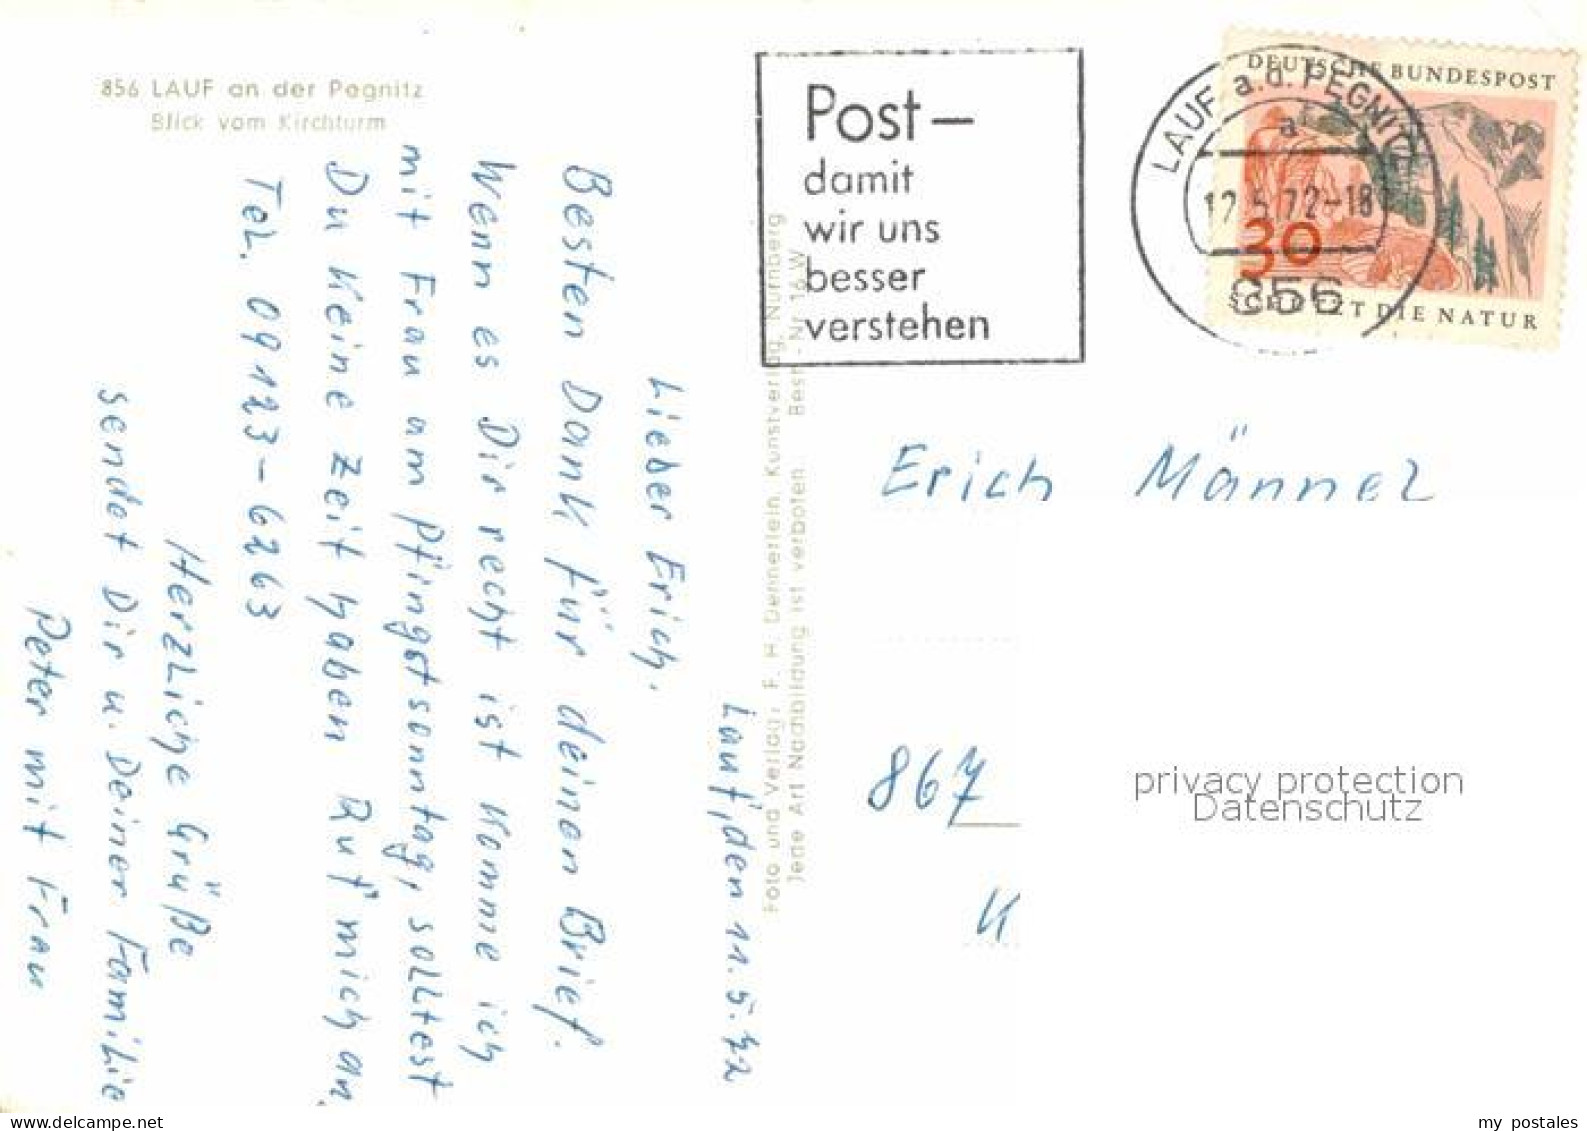 856 LAUF an der Pegnitz
Blick vom Kirchturm
Lauf, den 11.5.72
Lieber Erich.
Besten Dank für deinen Brief.
Wenn es Dir recht ist komme ich
mit Frau am Pfingstsonntag, solltest
Du keine Zeit haben Ruf mich an.
Tel. 09123-6263
Herzliche Grüße
sendet Dir u. Deiner Familie
Peter mit Frau
Foto und Verlag: F. H. Dennerlein, Kunstverlag, Nürnberg
Jede Art Nachbildung ist verboten Best.-Nr. 16 W
Post –
damit
wir uns
besser
verstehen
LAUF a.d. PEGNITZ
a
12.5.72-18
856
DEUTSCHE BUNDESPOST
30
SCHÜTZT DIE NATUR
Erich Männel
867
K
privacy protection
Datenschutz
www.delcampe.net
my postales